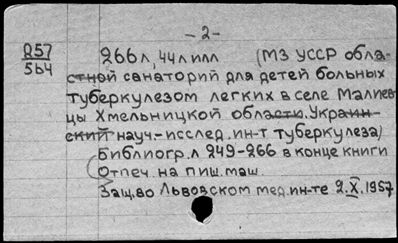 - 2 -
257
564
266 л, 44 л илл (МЗ УССР обла-
стной санаторий для детей больных
туберкулезом легких в селе Малиев-
цы Хмельницкой области. Украин-
ский науч-исслед. ин-т туберкулеза)
Библиогр. л 249-266 в конце книги
Отпеч. на пиш. маш.
Защ. во Львовском мед. ин-те 2. X. 1957